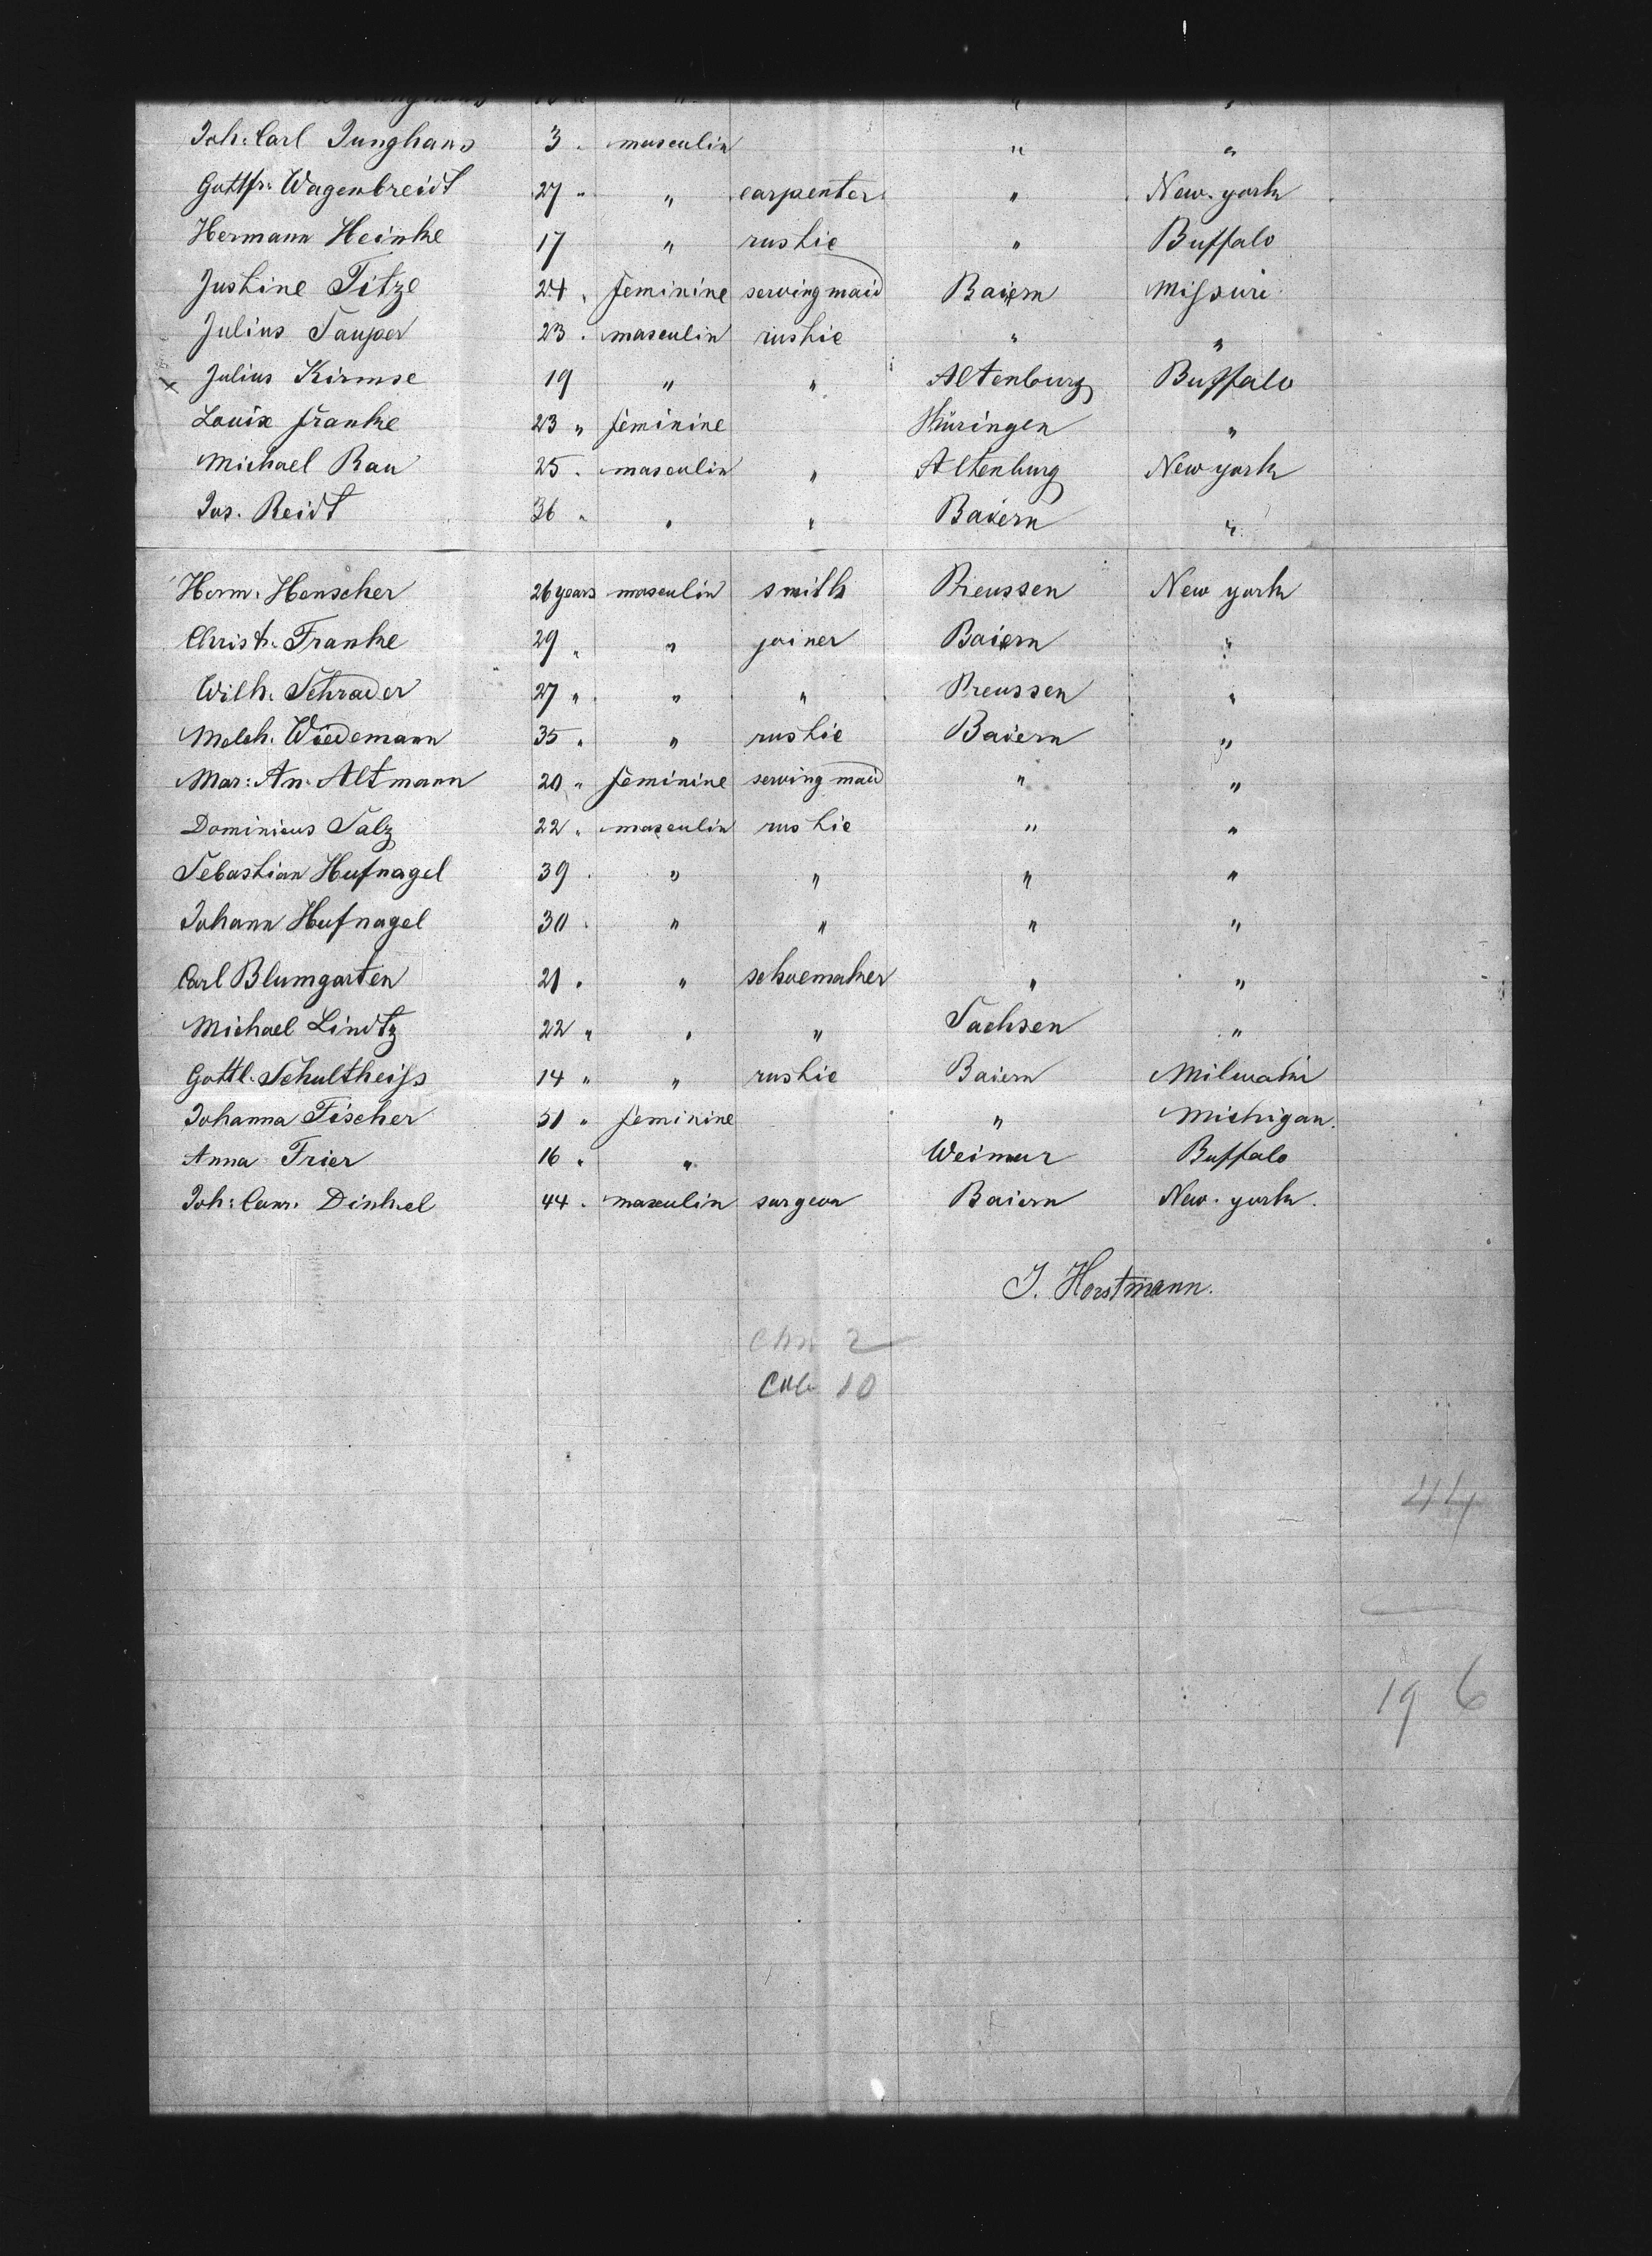 Joh: Carl Junghans 3 " masculin " "
Gottfr. Wagenbreidt 27 " " carpenter " New-york
Hermann Heinke 17 " rustic " Buffalo
Justine Titze 24 " feminine serving maid Baiern Missuri
Julius Tauper 23 " masculin rustic " "
x Julius Kirmse 19 " " Altenburg Buffalo
Louise Franke 23 " feminine Thüringen "
Michael Rau 25 " masculin " Altenburg New york
Jos. Reidt 36 " " " Baiern "
Herm. Henscher 26 years masculin smith Preussen New york
Christ. Franke 29 " " joiner Baiern "
Wilh. Schrader 27 " " " Preussen "
Melch. Wiedemann 35 " " rustic Baiern "
Mar: An: Altmann 20 " feminine serving maid " "
Dominicus Salz 22 " masculin rustic " "
Sebastian Hufnagel 39 " " " " "
Johann Hufnagel 30 " " " " "
Carl Blumgarten 21 " " schoemaker " "
Michael Lindtz 22 " " " Sachsen "
Gottl. Schultheiss 14 " " rustic Baiern Milwaki
Johanna Fischer 51 " feminine " Michigan.
Anna Frier 16 " " Weimar Buffalo
Joh: Conr. Dinkel 44 " masculin surgeon Baiern New-york.
J. Horstmann.
2
10
44
19 6